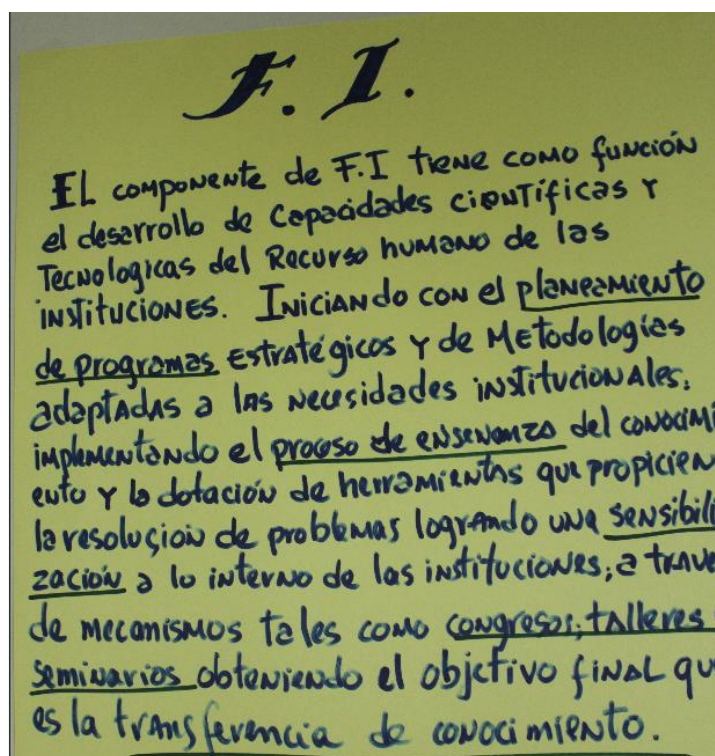 F. I.
EL componente de F.I tiene como función
el desarrollo de Capacidades científicas y
Tecnologicas del Recurso humano de las
instituciones. Iniciando con el planeamiento
de programas Estratégicos y de Metodologías
adaptadas a las necesidades institucionales,
implementando el proceso de ensenanza del conocimi
ento y la dotación de herramientas que propicien
la resolución de problemas logrando una sensibili
zación a lo interno de las instituciones; a trave
de mecanismos tales como congresos; talleres
seminarios obteniendo el objctivo final qu
es la transferencia de conocimiento.